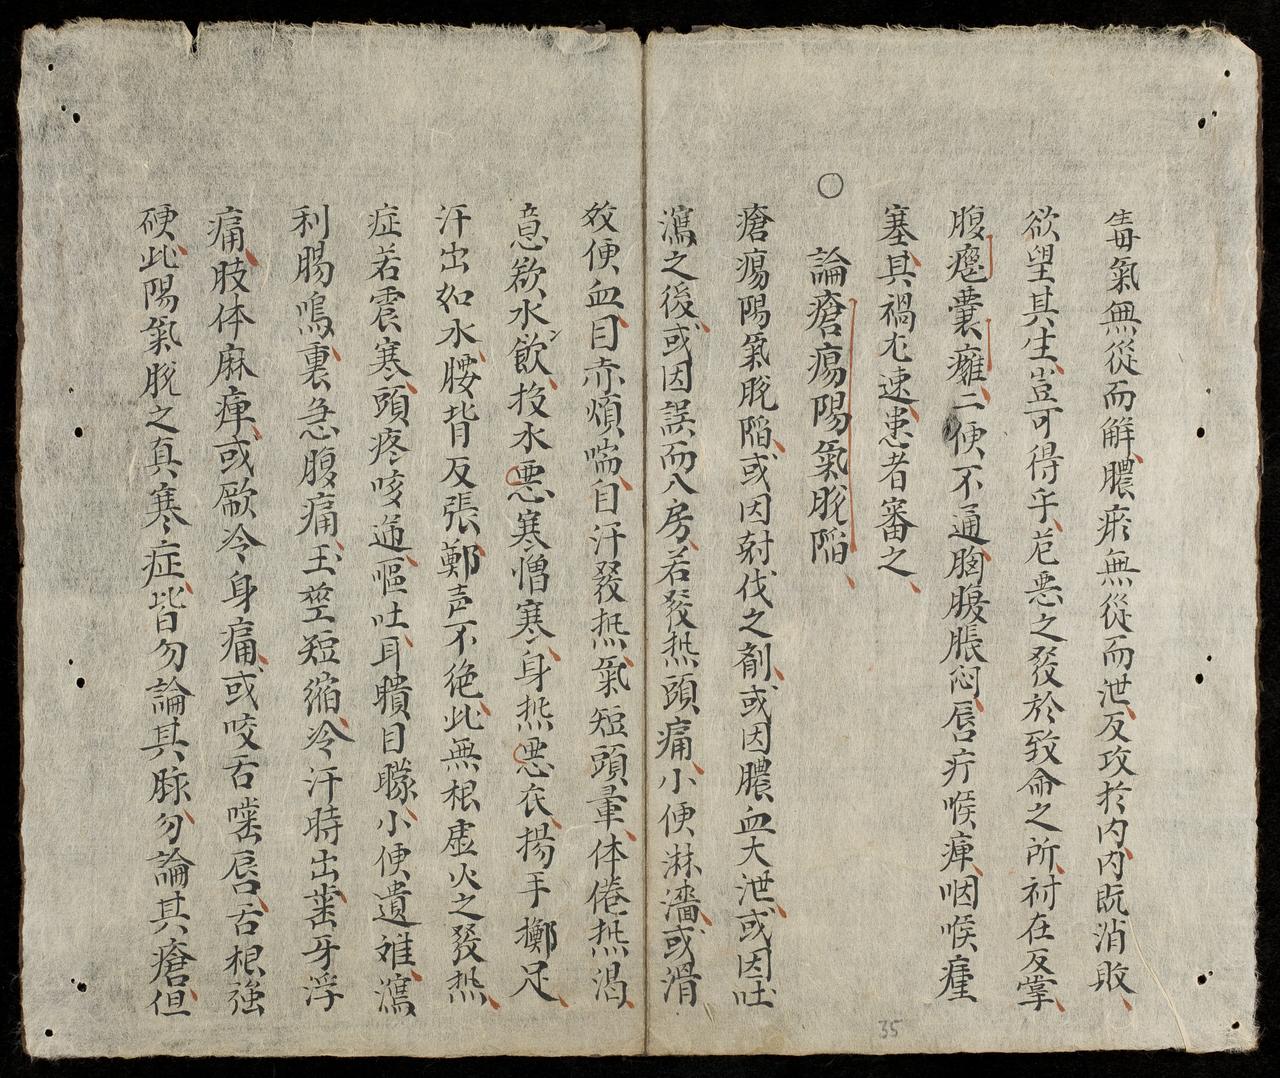 毒氣無從而解膿瘀無從而泄反攻於內內既消敗
欲望其生豈可得乎茋惡之發於致命之所禍在反掌
腹癰囊癰二便不通胸腹脹悶唇疔喉痺咽喉瘇
塞其禍尤速患者審之
○
論瘡瘍陽氣脫陷
瘡瘍陽氣脫陷或因尅伐之劑或因膿血大泄或因吐
瀉之後或因誤而入房若發热頭痛小便淋濇或滑
效便血目赤煩喘自汗發热氣短頭暈体倦热渴
意欲水飲投水惡寒憎寒身热惡衣揚手擲足
汗出如水腰背反張鄭声不絶此無根虛火之發热
症若震寒頭疼咳逆嘔吐耳聵目矇小便遺难瀉
利腸鳴裏急腹痛玉莖短縮冷汗時出崟牙浮
痛肢体麻痺或厥冷身痛或咬舌噬唇舌根強
硬此陽氣脫之真寒症皆勿論其脉勿論其瘡但
35